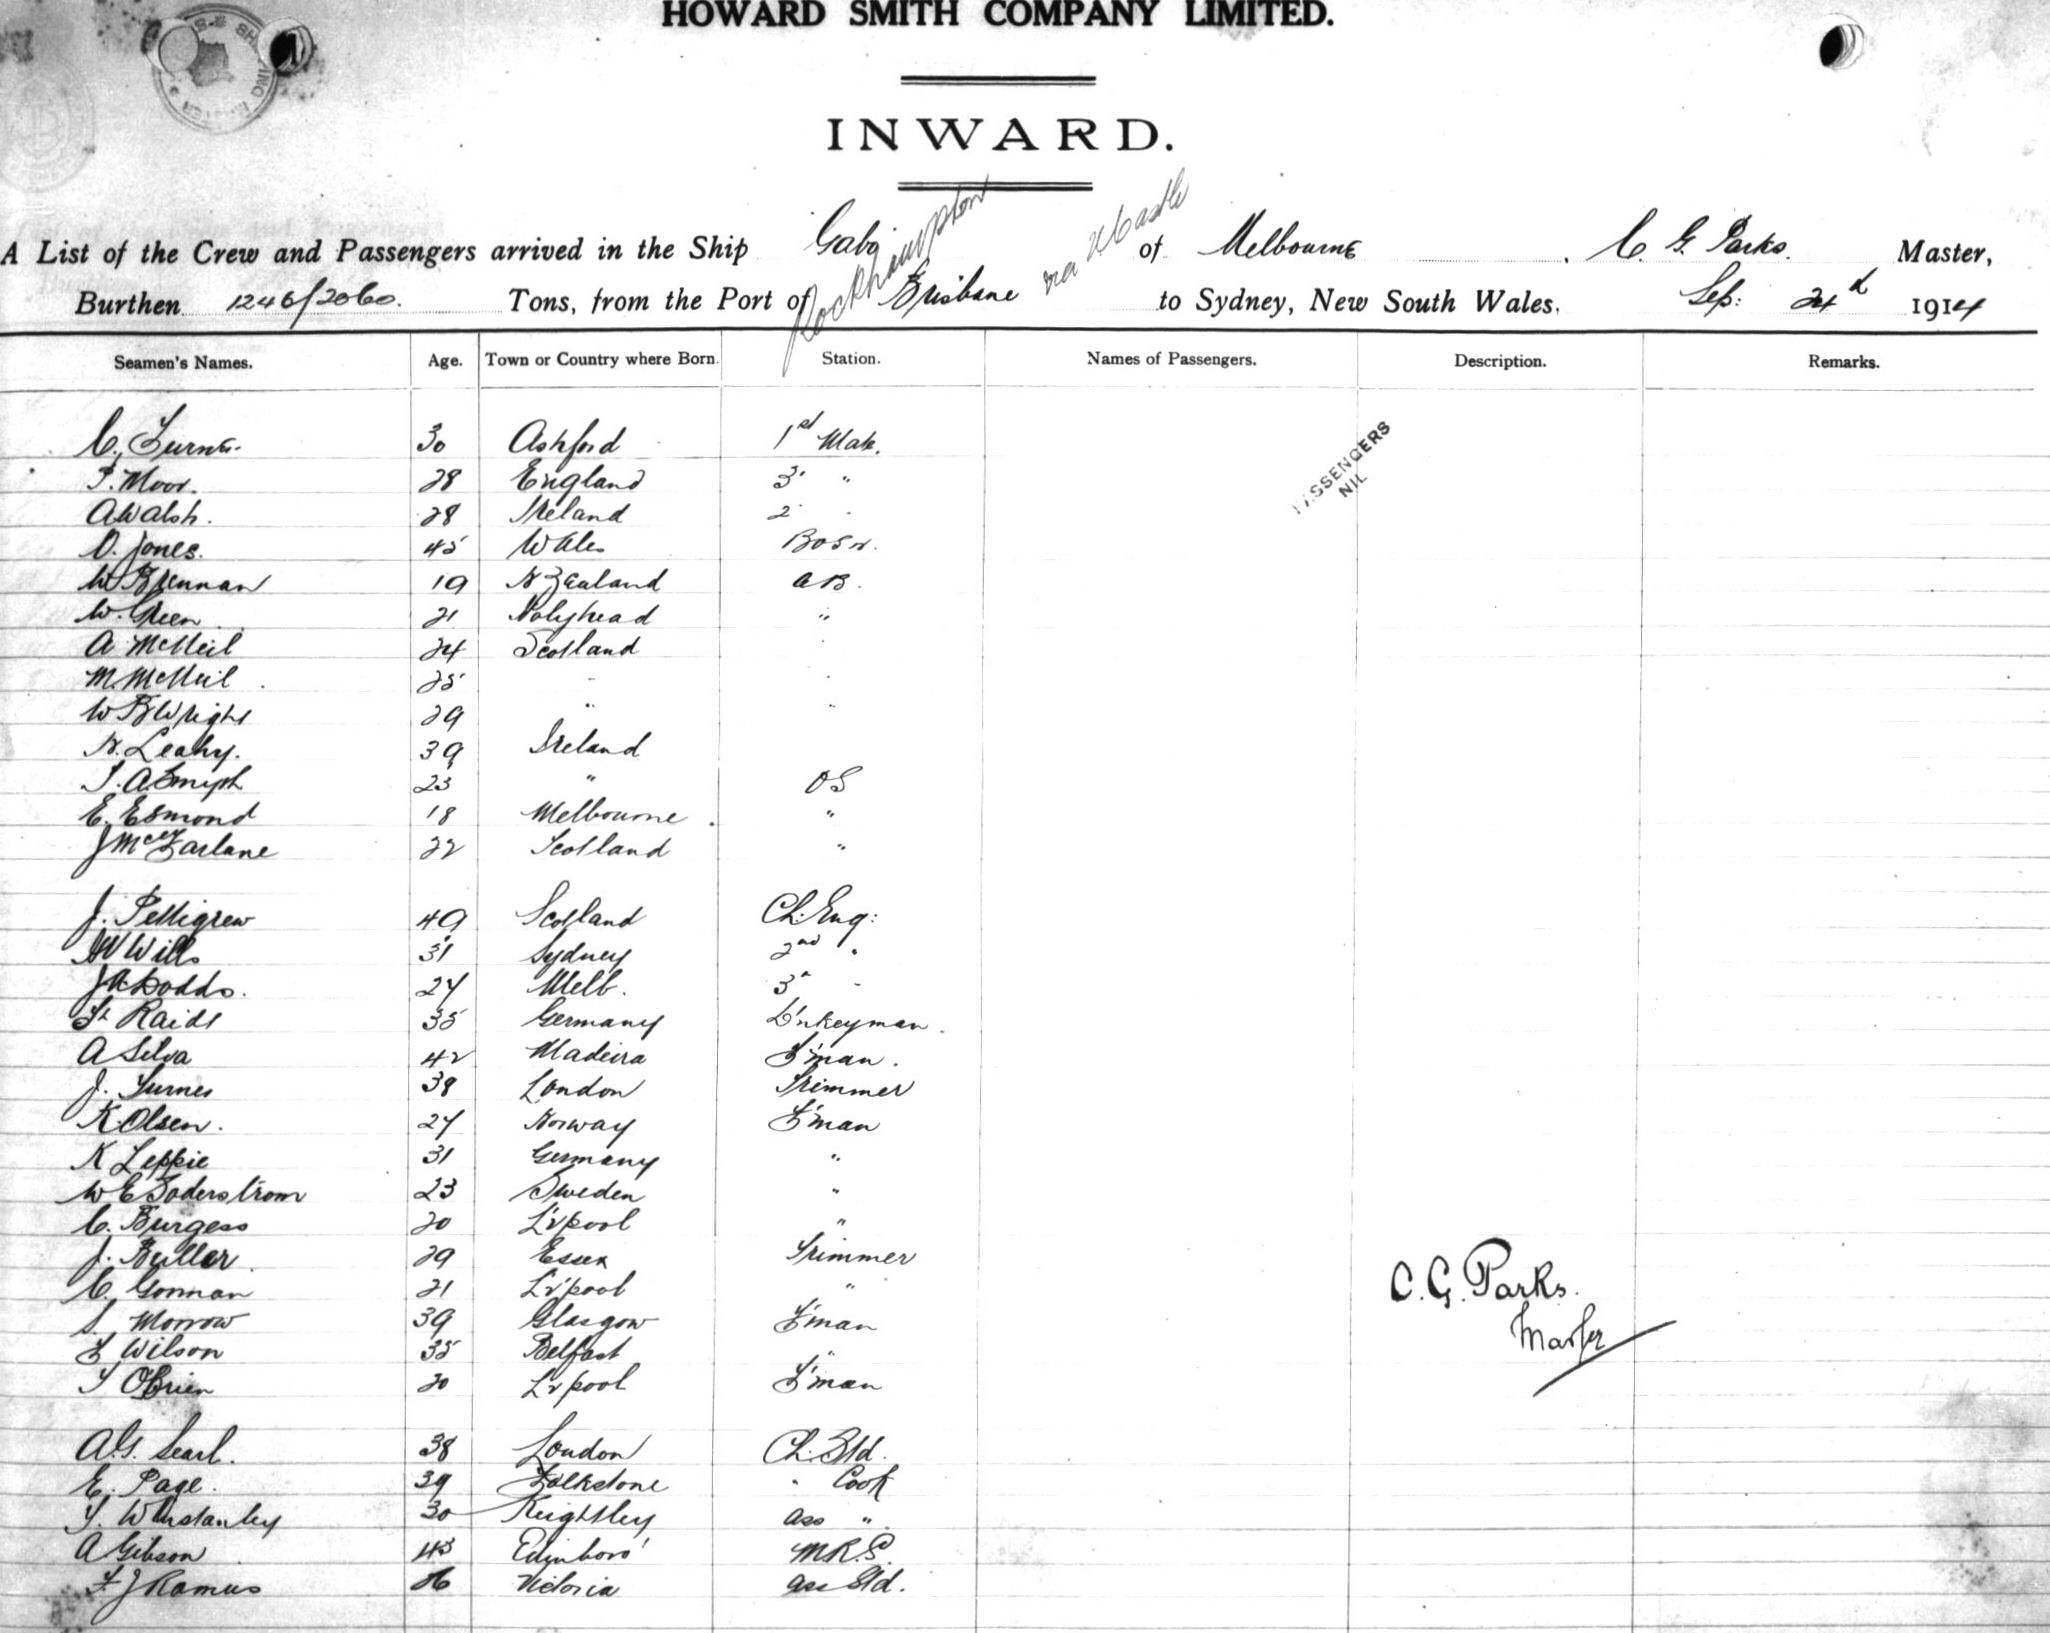 HOWARD SMITH COMPANY LIMITED.
INWARD.
A List of the Crew and Passengers arrived in the Ship Gabo of Melbourne, C. G. Parks. Master,
Burthen 1246/2060. Tons, from the Port of Rockhampton Brisbane via N Castle to Sydney, New South Wales. Sep: 24d 1914
Seamen's Names. Age. Town or Country where Born. Station. Names of Passengers. Description. Remarks.
C. Turner. 30 Ashford 1st Mate.
P. Moor. 28 England 3 "
PASSENGERS
NIL
A Walsh. 28 Ireland 2
O. Jones. 45 Wales Bosn.
W Brennan 19 N Zealand AB.
W. Green 21 Holyhead "
A McNeil 24 Scotland
M. McNeil 25 "
W B Wright 29 " "
N. Leahy. 39 Ireland
T. A Smyth 23 " OS
E. Esmond 18 Melbourne "
J McFarlane 22 Scotland "
J. Pettigrew 49 Scotland Ch. Eng:
Wills 31 Sydney 2nd "
Dodds. 27 Melb. 3rd "
Raidt 35 Germany D'nkeyman.
A Silva 42 Madeira F'man.
J. Turnes 38 London Trimmer
K. Olsen. 27 Norway F'man
K Leppie 31 Germany "
W E Soderstrom 23 Sweden "
C. Burgess 20 L'vpool "
J. Butler. 29 Essex Trimmer
C. Gorman 21 L'vpool "
S. Morrow 39 Glasgow F'man
F Wilson 35 Belfast "
T O'Brien 20 L'vpool F'man
C. G. Parks.
Master
A. G. Searl. 38 London Ch. Std.
E. Page. 39 Folkstone " Cook
T. Winstanley 30 Keightley ass "
A Gibson 43 Edinboro' M.R.S.
F J Ramus 26 Victoria ass Std.